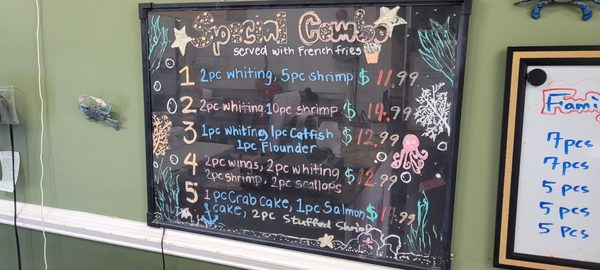 Special Combo
served with French fries
1 2pc whiting, 5pc shrimp $11.99
2 2pc whiting, 10pc shrimp $14.99
3 1pc whiting, 1pc Catfish $12.99
1pc Flounder
4 2pc wings, 2pc whiting $12.99
2pc shrimp, 2pc scallops
5 1pc Crab Cake, 1pc Salmon
cake, 2pc Stuffed Shrimp
7pcs
7pcs
5pcs
5pcs
5pcs